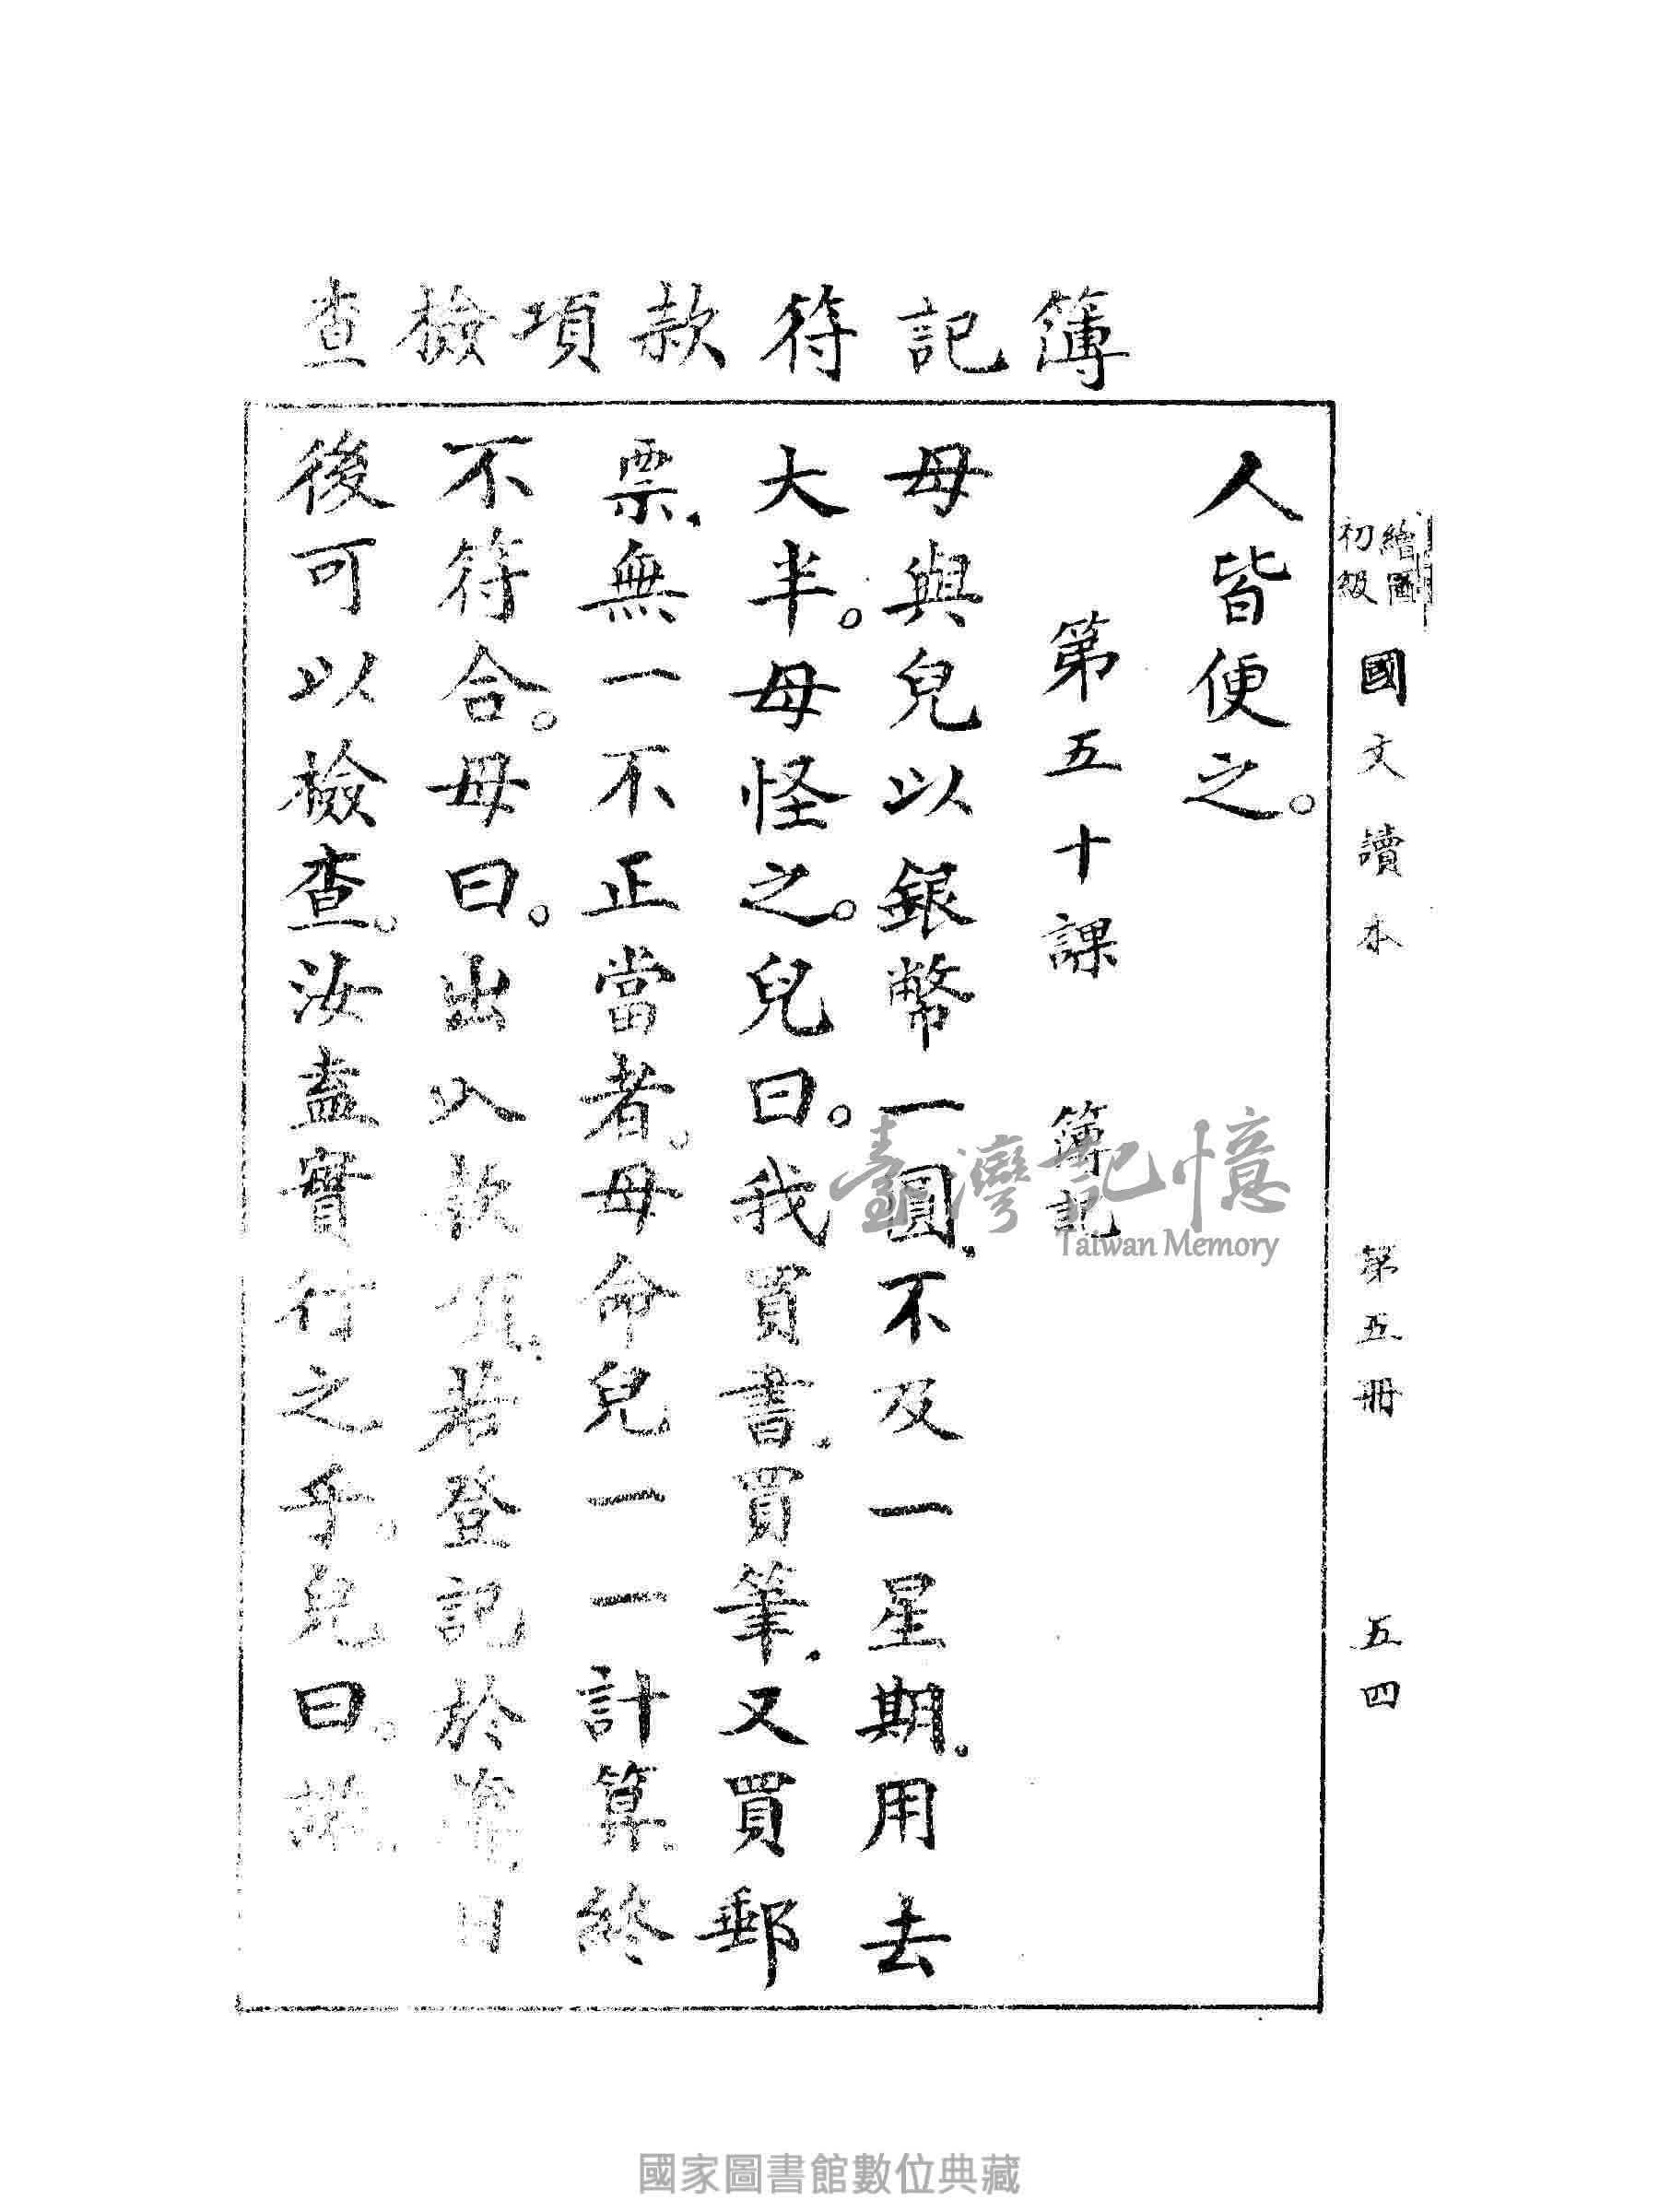 繪圖初級國文讀本 第五冊 五四
簿記符款項檢查
人皆便之。
第五十課 簿記
母與兒以銀幣一圓、不及一星期。用去
大半。母怪之。兒曰。我買書、買筆、又買郵
票、無一不正當者。母命兒一一計算、終
不符合。母曰。出入款項、若登記於簿、日
後可以檢查。汝盍實行之乎。兒曰。諾、
臺灣記憶
Taiwan Memory
國家圖書館數位典藏